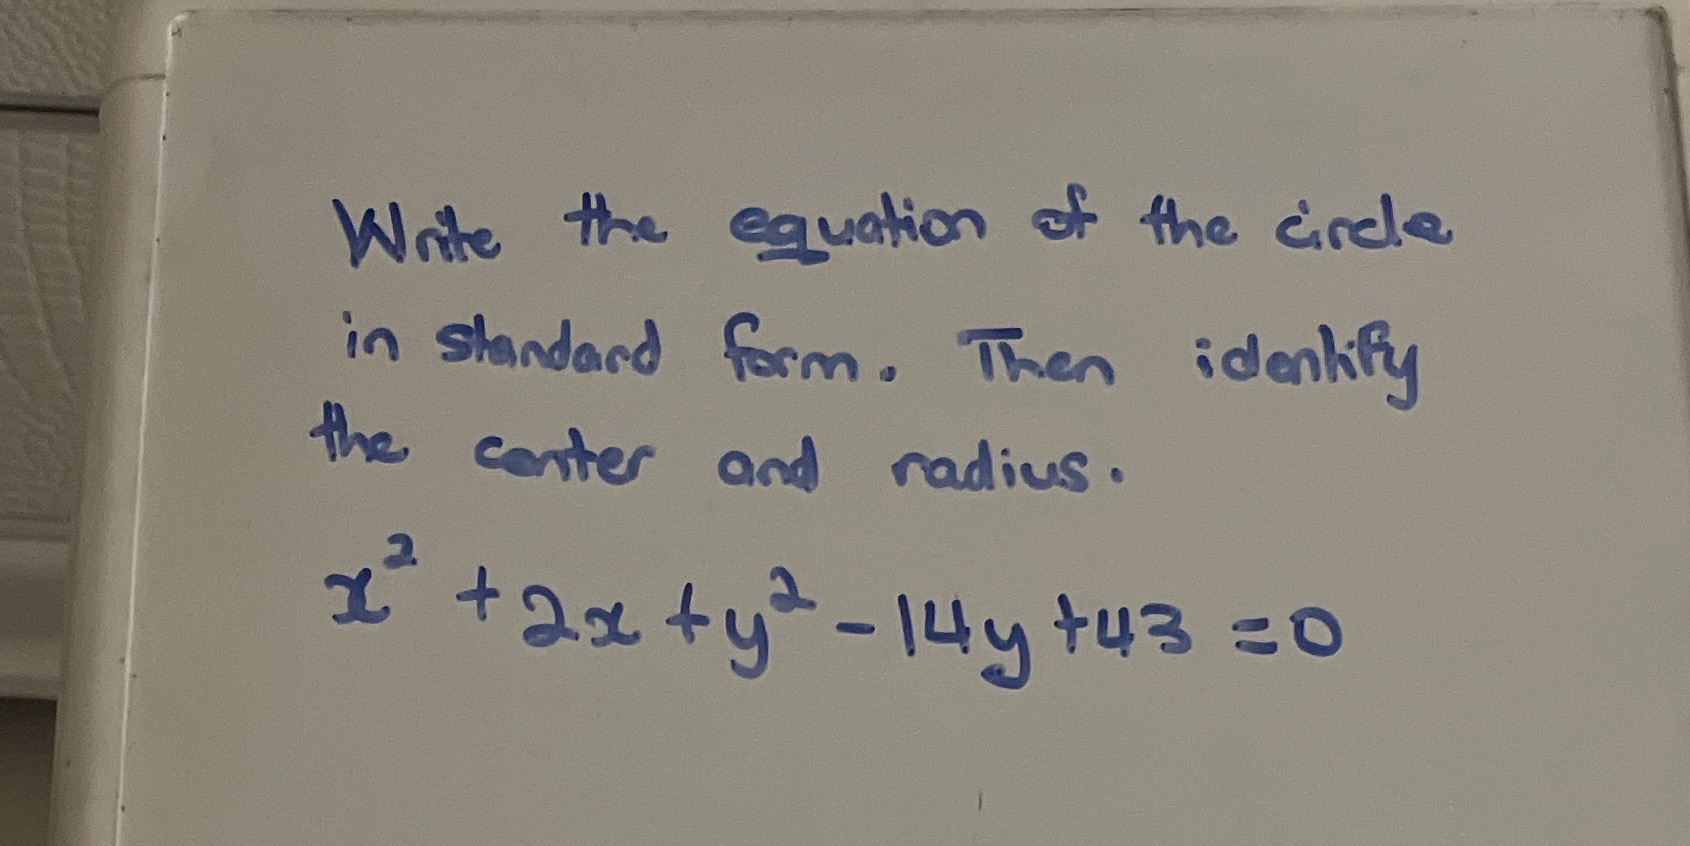 Write the equation of the circle
in standard form. Then identify
the center and radius.
x² + 2x + y² - 14y + 43 = 0